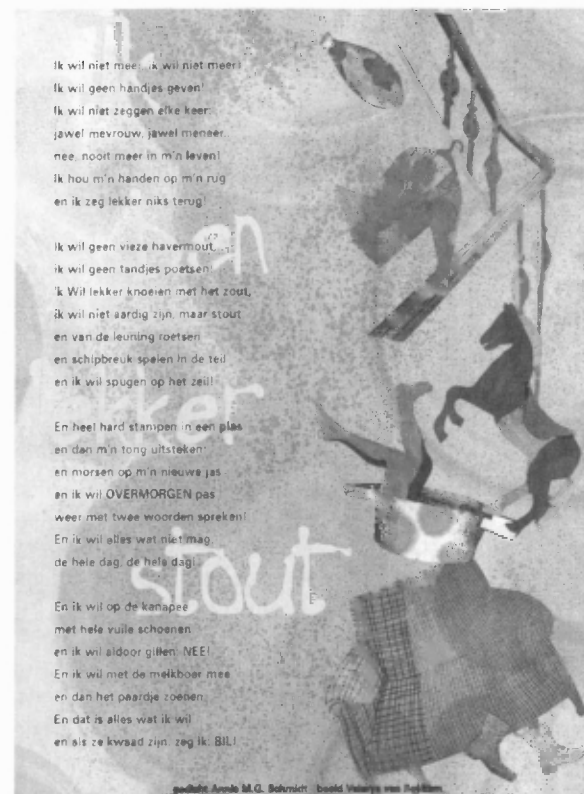 Ik
ben
lekker
stout
Ik wil niet meer, ik wil niet meer!
Ik wil geen handjes geven!
Ik wil niet zeggen elke keer:
jawel mevrouw, jawel meneer,
nee, nooit meer in m'n leven!
Ik hou m'n handen op m'n rug
en ik zeg lekker niks terug!
Ik wil geen vieze havermout,
ik wil geen tandjes poetsen!
'k Wil lekker knoeien met het zout,
ik wil niet aardig zijn, maar stout
en van de leuning roetsen
en schipbreuk spelen in de teil
en ik wil spugen op het zeil!
En heel hard stampen in een plas
en dan m'n tong uitsteken
en morsen op m'n nieuwe jas
en ik wil OVERMORGEN pas
weer met twee woorden spreken!
En ik wil alles wat niet mag,
de hele dag, de hele dag!
En ik wil op de kanapee
met hele vuile schoenen
en ik wil aldoor gillen: NEE!
En ik wil met de melkboer mee
en dan het paardje zoenen.
En dat is alles wat ik wil
en als ze kwaad zijn, zeg ik: BIL!
gedicht Annie M.G. Schmidt beeld van